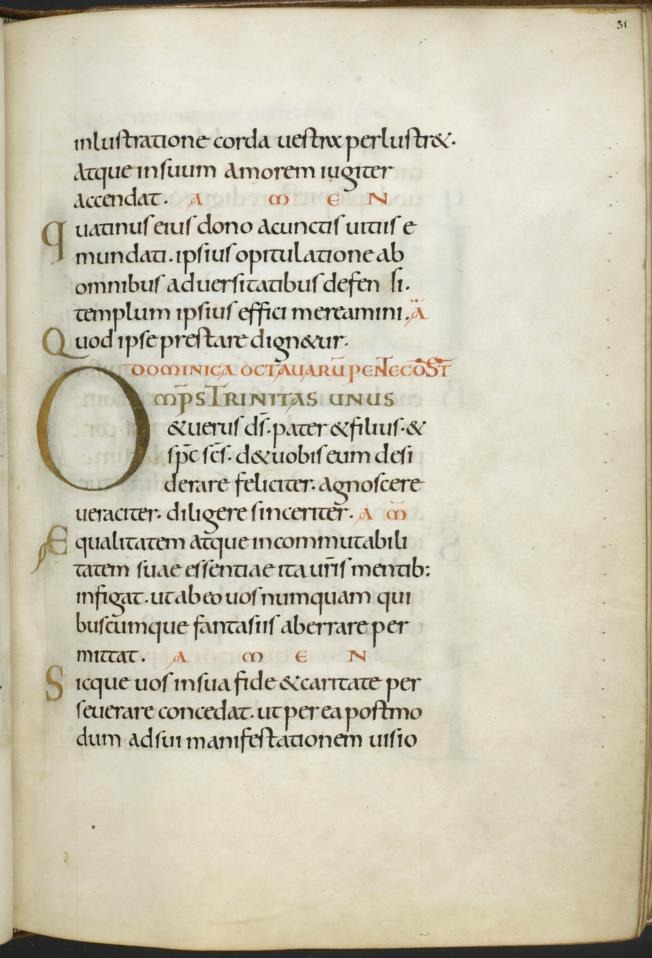 31
inlustratione corda uestra perlustr&.
Atque insuum amorem iugiter
accendat. A M E N
Quatinus eius dono acunctis uitiis e
mundati. ipsius opitulatione ab
omnibus aduersitatibus defen si.
templum ipsius effici mereamini. Ā
Quod ipse prestare dign&ur.
DOMINICA OCTAUARŪ PENTECOST̄
OMP̄S TRINITAS UNUS
&uerus dS̄. pater &filius. &
sp̄c sc̄s. d&uobis eum desi
derare feliciter. agnoscere
ueraciter. diligere sinceriter. A M̄
Equalitatem atque incommutabili
tatem suae essentiae ita ur̄is mentib:
infigat. ut ab eo uos numquam qui
buscumque fantasiis aberrare per
mittat. A M E N
Sicque uos insua fide &caritate per
seuerare concedat. ut per ea postmo
dum adsui manifestationem uisio